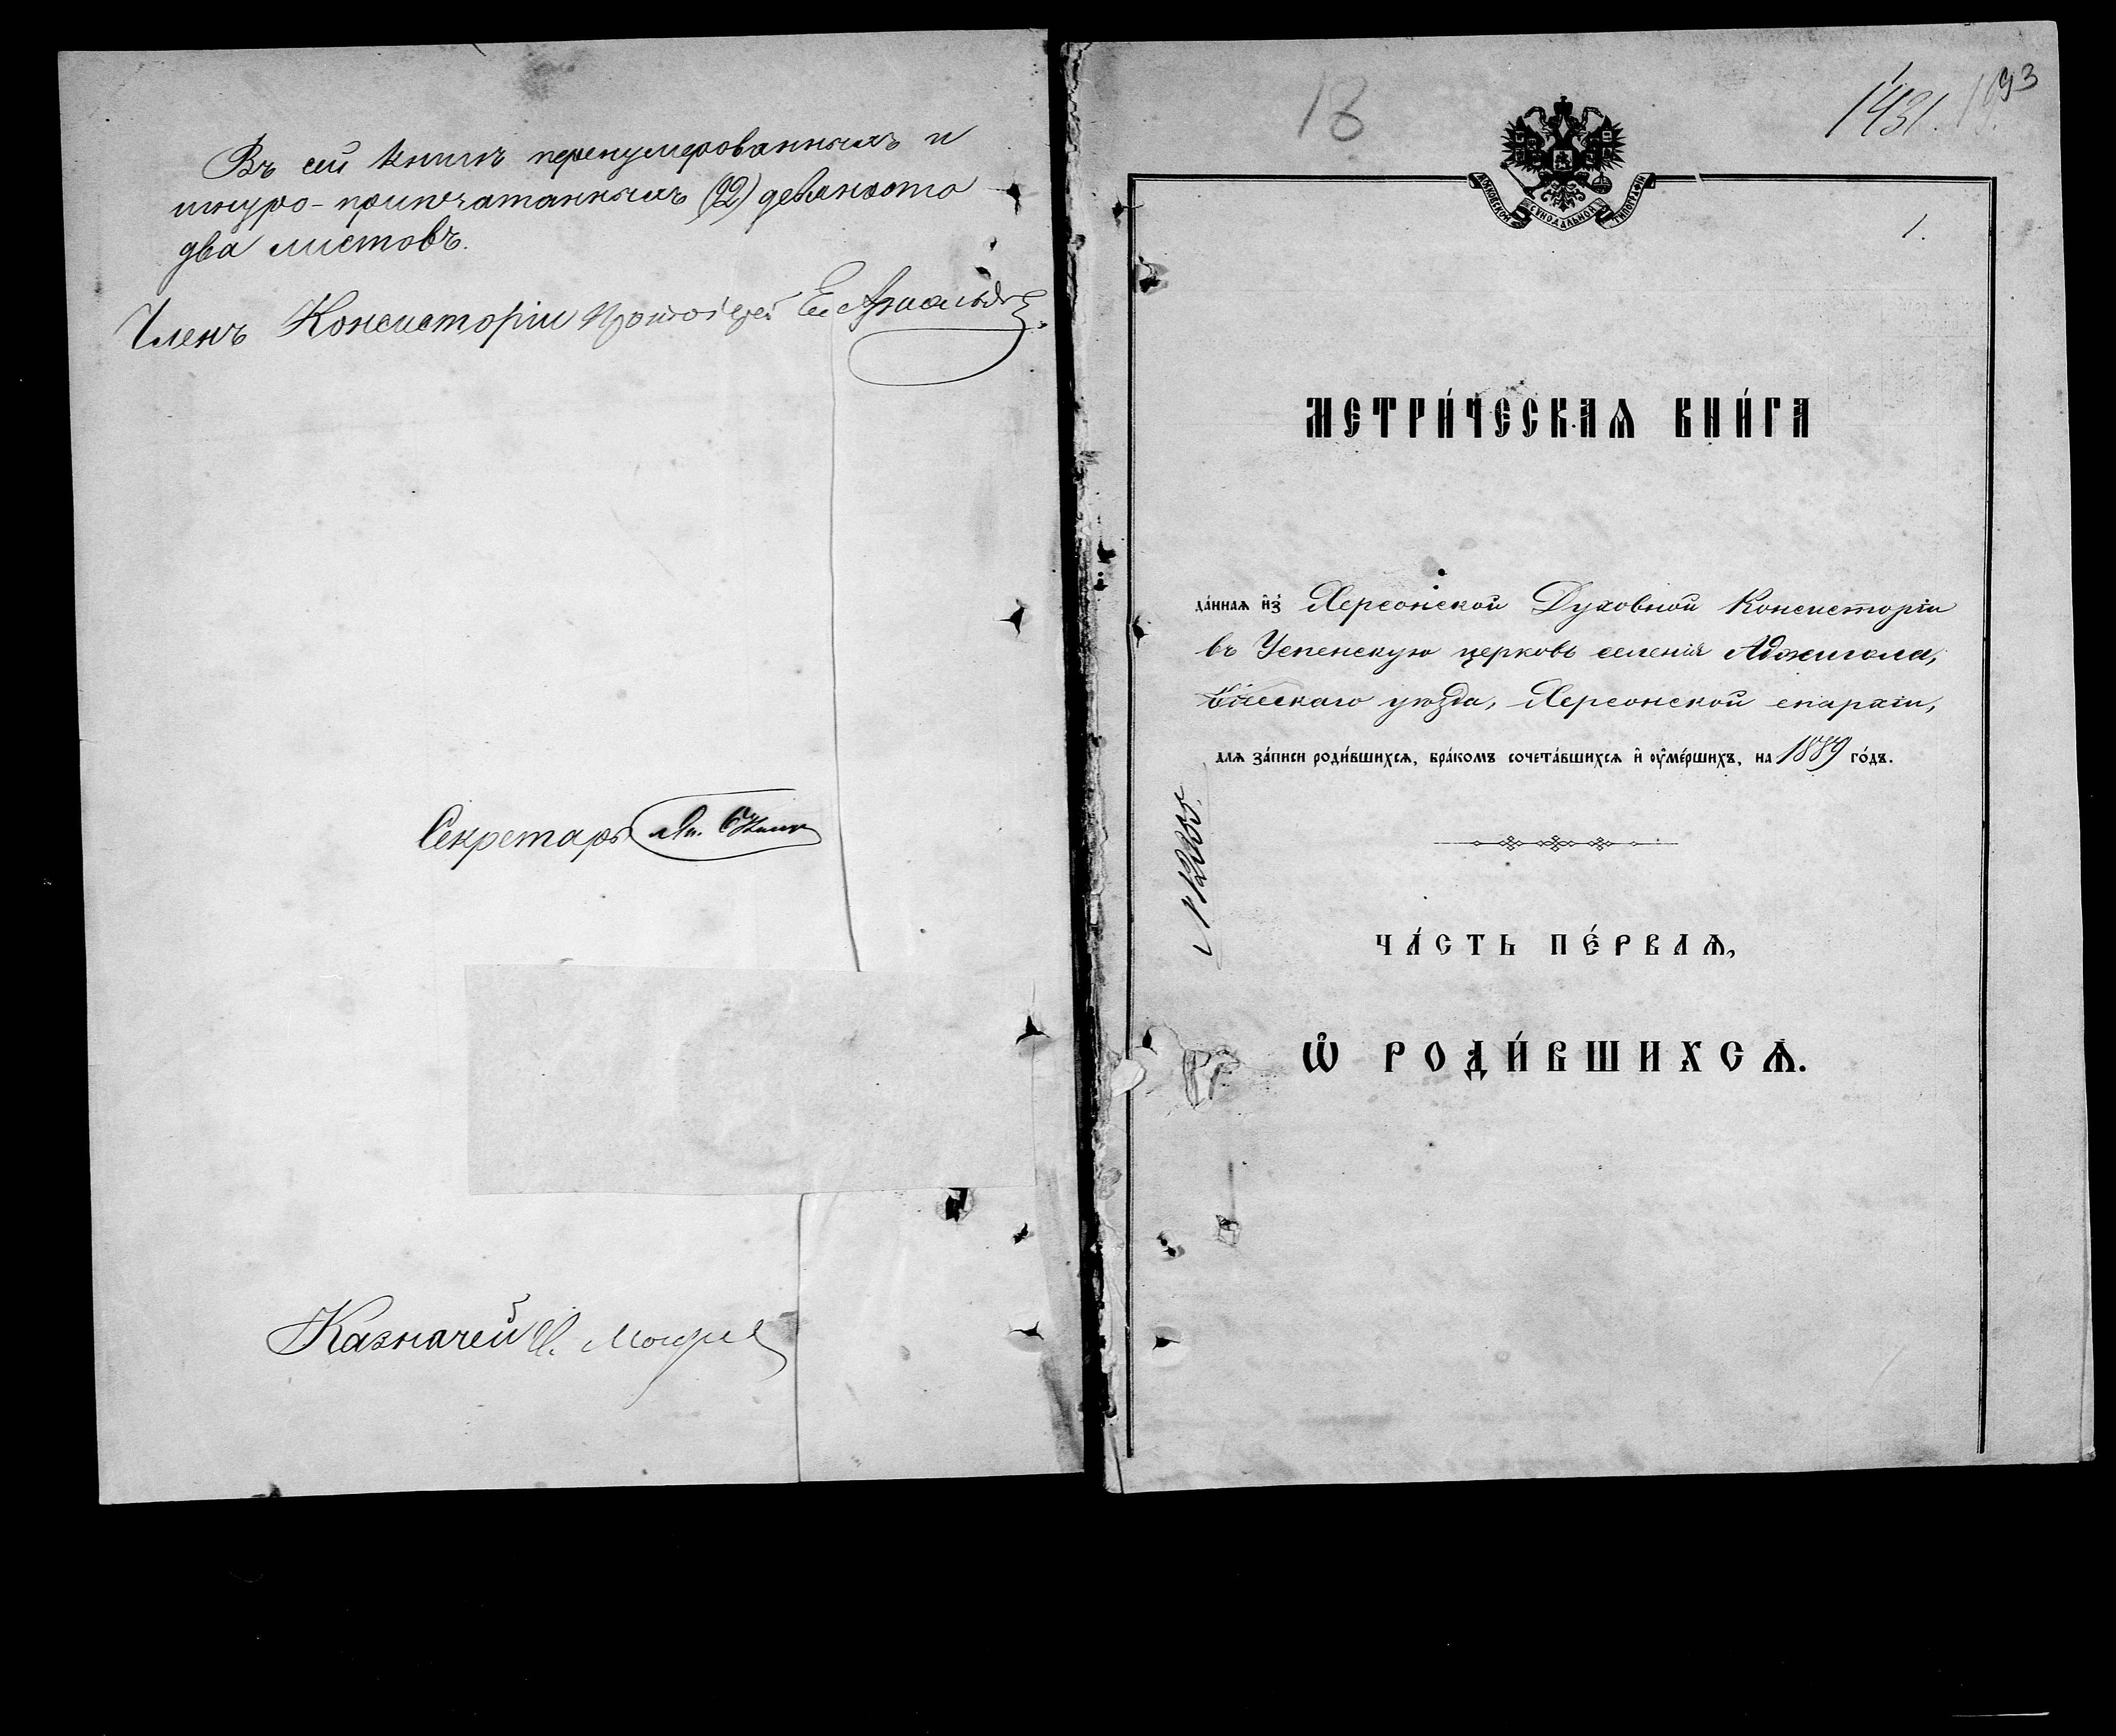 Въ сей книгѣ перенумерованныхъ и
шнуро-припечатанныхъ (92) девяносто
два листовъ.
Членъ Консисторіи Протоіерей
Секретарь
Казначей
18
1431. 1693
МОСКОВСКОЙ СѴНОДАЛЬНОЙ ТИПОГРАФІИ
1.
МЕТРИ́ЧЕСКАѦ КНИ́ГА
да́ннаѧ и҆з̾ Херсонской Духовной Консисторіи
въ Успенскую церковь селенія Аджигола,
уѣзда, Херсонской епархіи,
для за́писи роди́вшихсѧ, бра́комъ сочета́вшихсѧ и҆ ᲂу҆ме́ршихъ, на 1889 го́дъ.
ЧА́СТЬ ПЕ́РВАѦ,
Ѽ РОДИ́ВШИХСѦ.